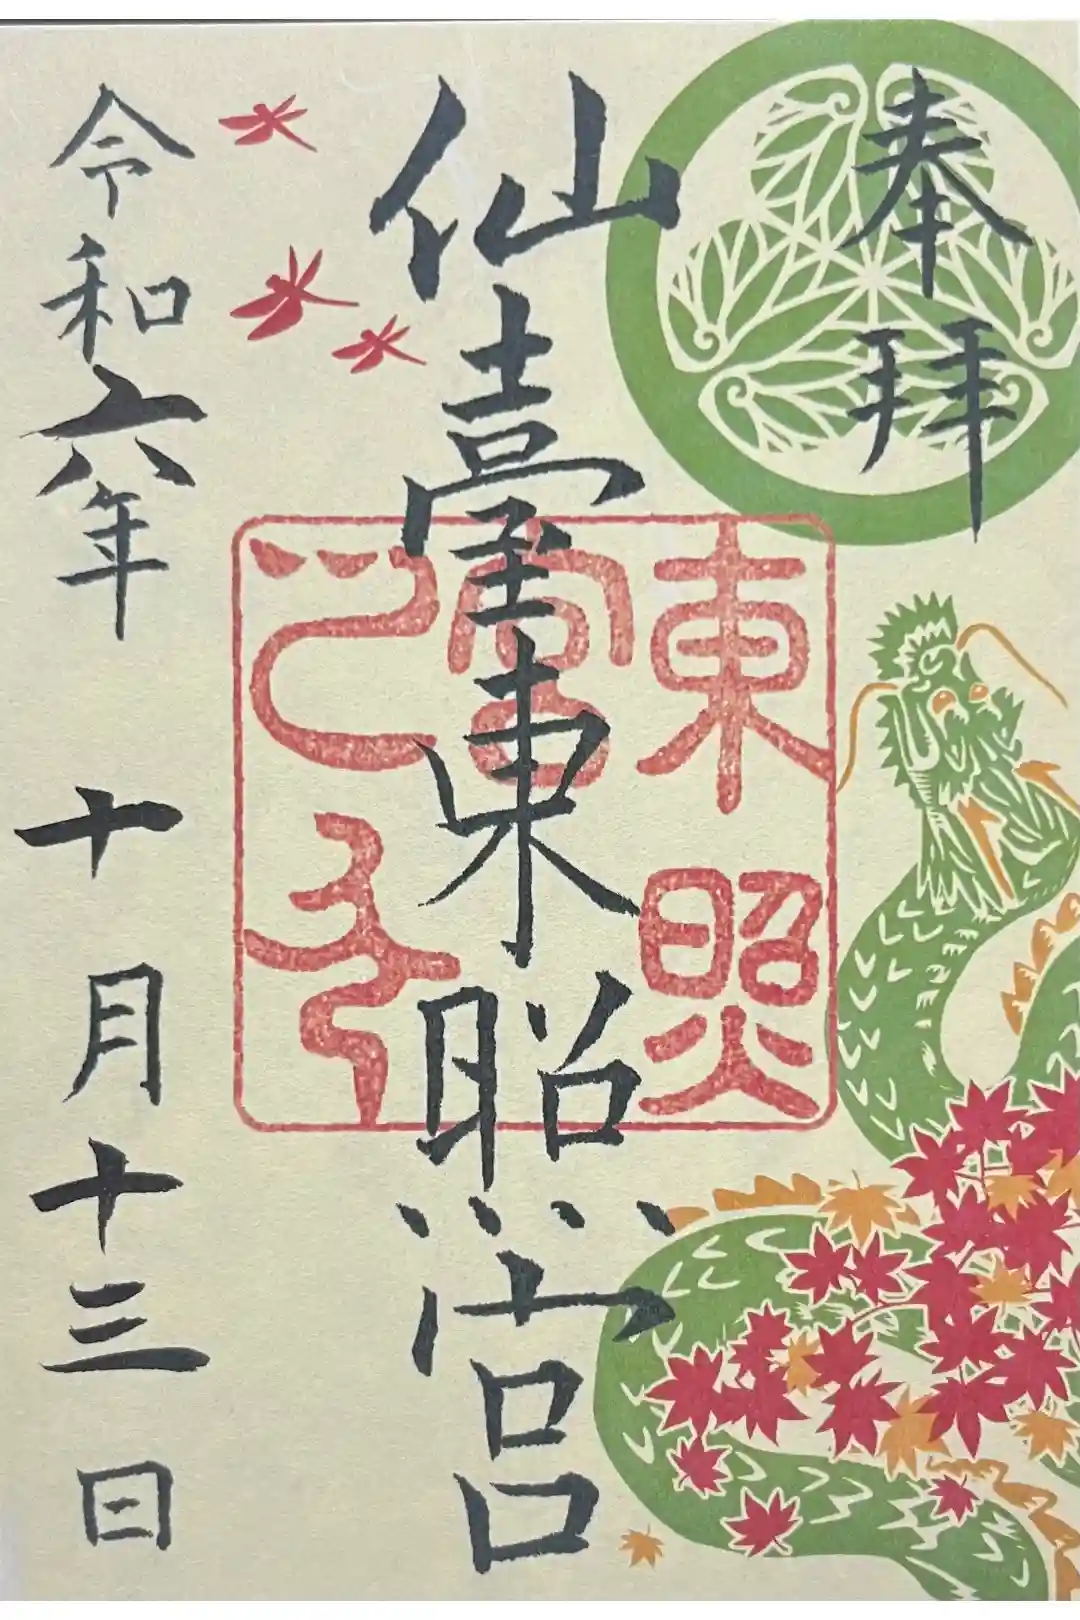 奉拝
仙臺東照宮
東照
宮
之印
令和六年 十月十三日